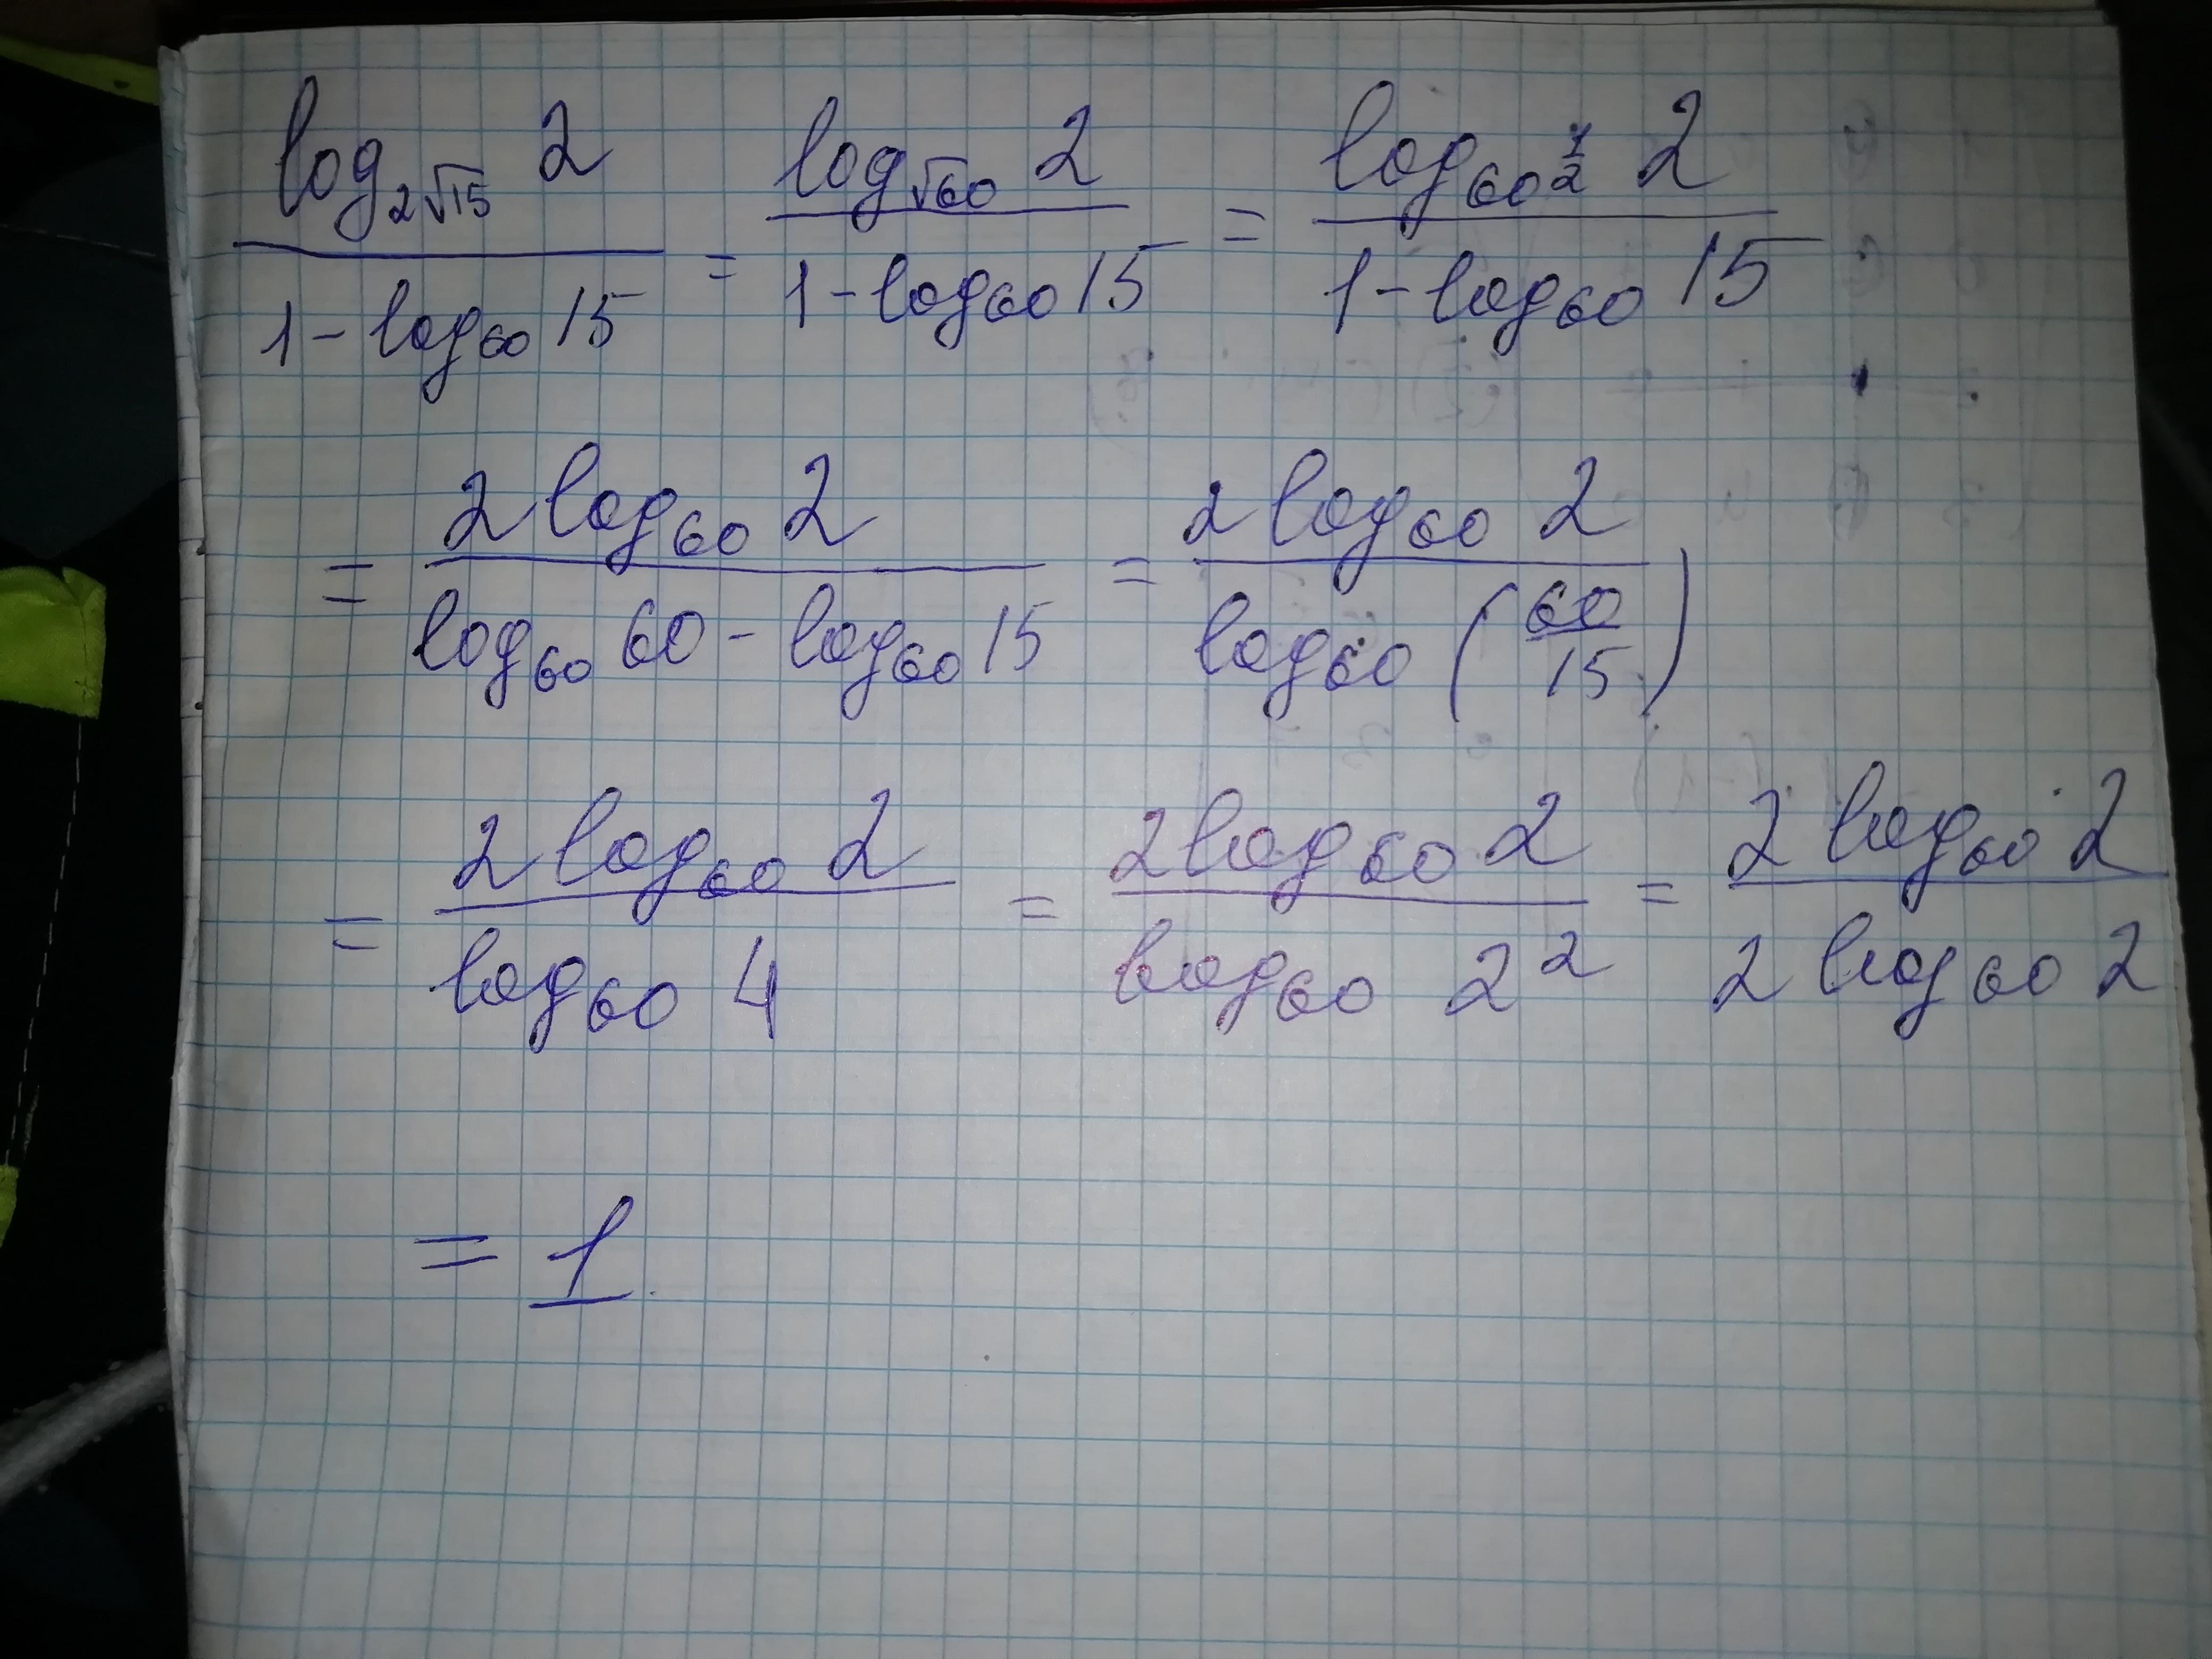 log_{2√15} 2 / (1 - log_{60} 15) = log_{√60} 2 / (1 - log_{60} 15) = log_{60^{1/2}} 2 / (1 - log_{60} 15)
= 2 log_{60} 2 / (log_{60} 60 - log_{60} 15) = 2 log_{60} 2 / log_{60} (60/15)
= 2 log_{60} 2 / log_{60} 4 = 2 log_{60} 2 / log_{60} 2^2 = 2 log_{60} 2 / 2 log_{60} 2
= 1